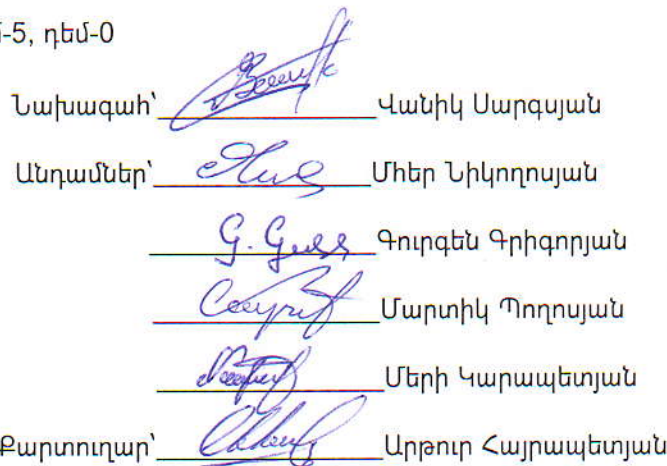 -5, դեմ-0
Նախագահ՝ Վանիկ Սարգսյան
Անդամներ՝ Մհեր Նիկողոսյան
G. Գուրգեն Գրիգորյան
Մարտիկ Պողոսյան
Մերի Կարապետյան
Քարտուղար՝ Արթուր Հայրապետյան